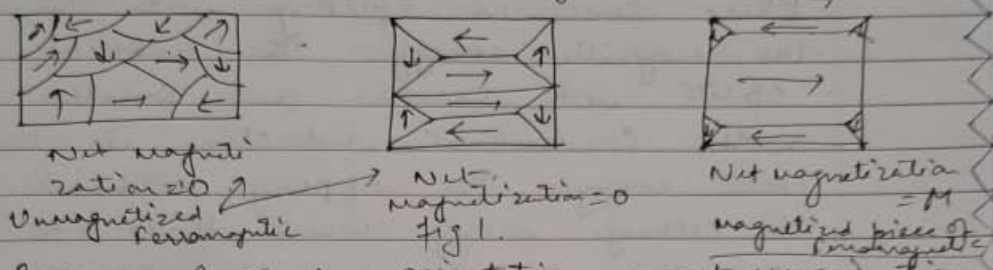 Net magneti
zation = 0
Unmagnetized
ferromagnetic
Net
magnetization = 0
Fig 1.
Net magnetization
= M
magnetized piece of
ferromagnetic